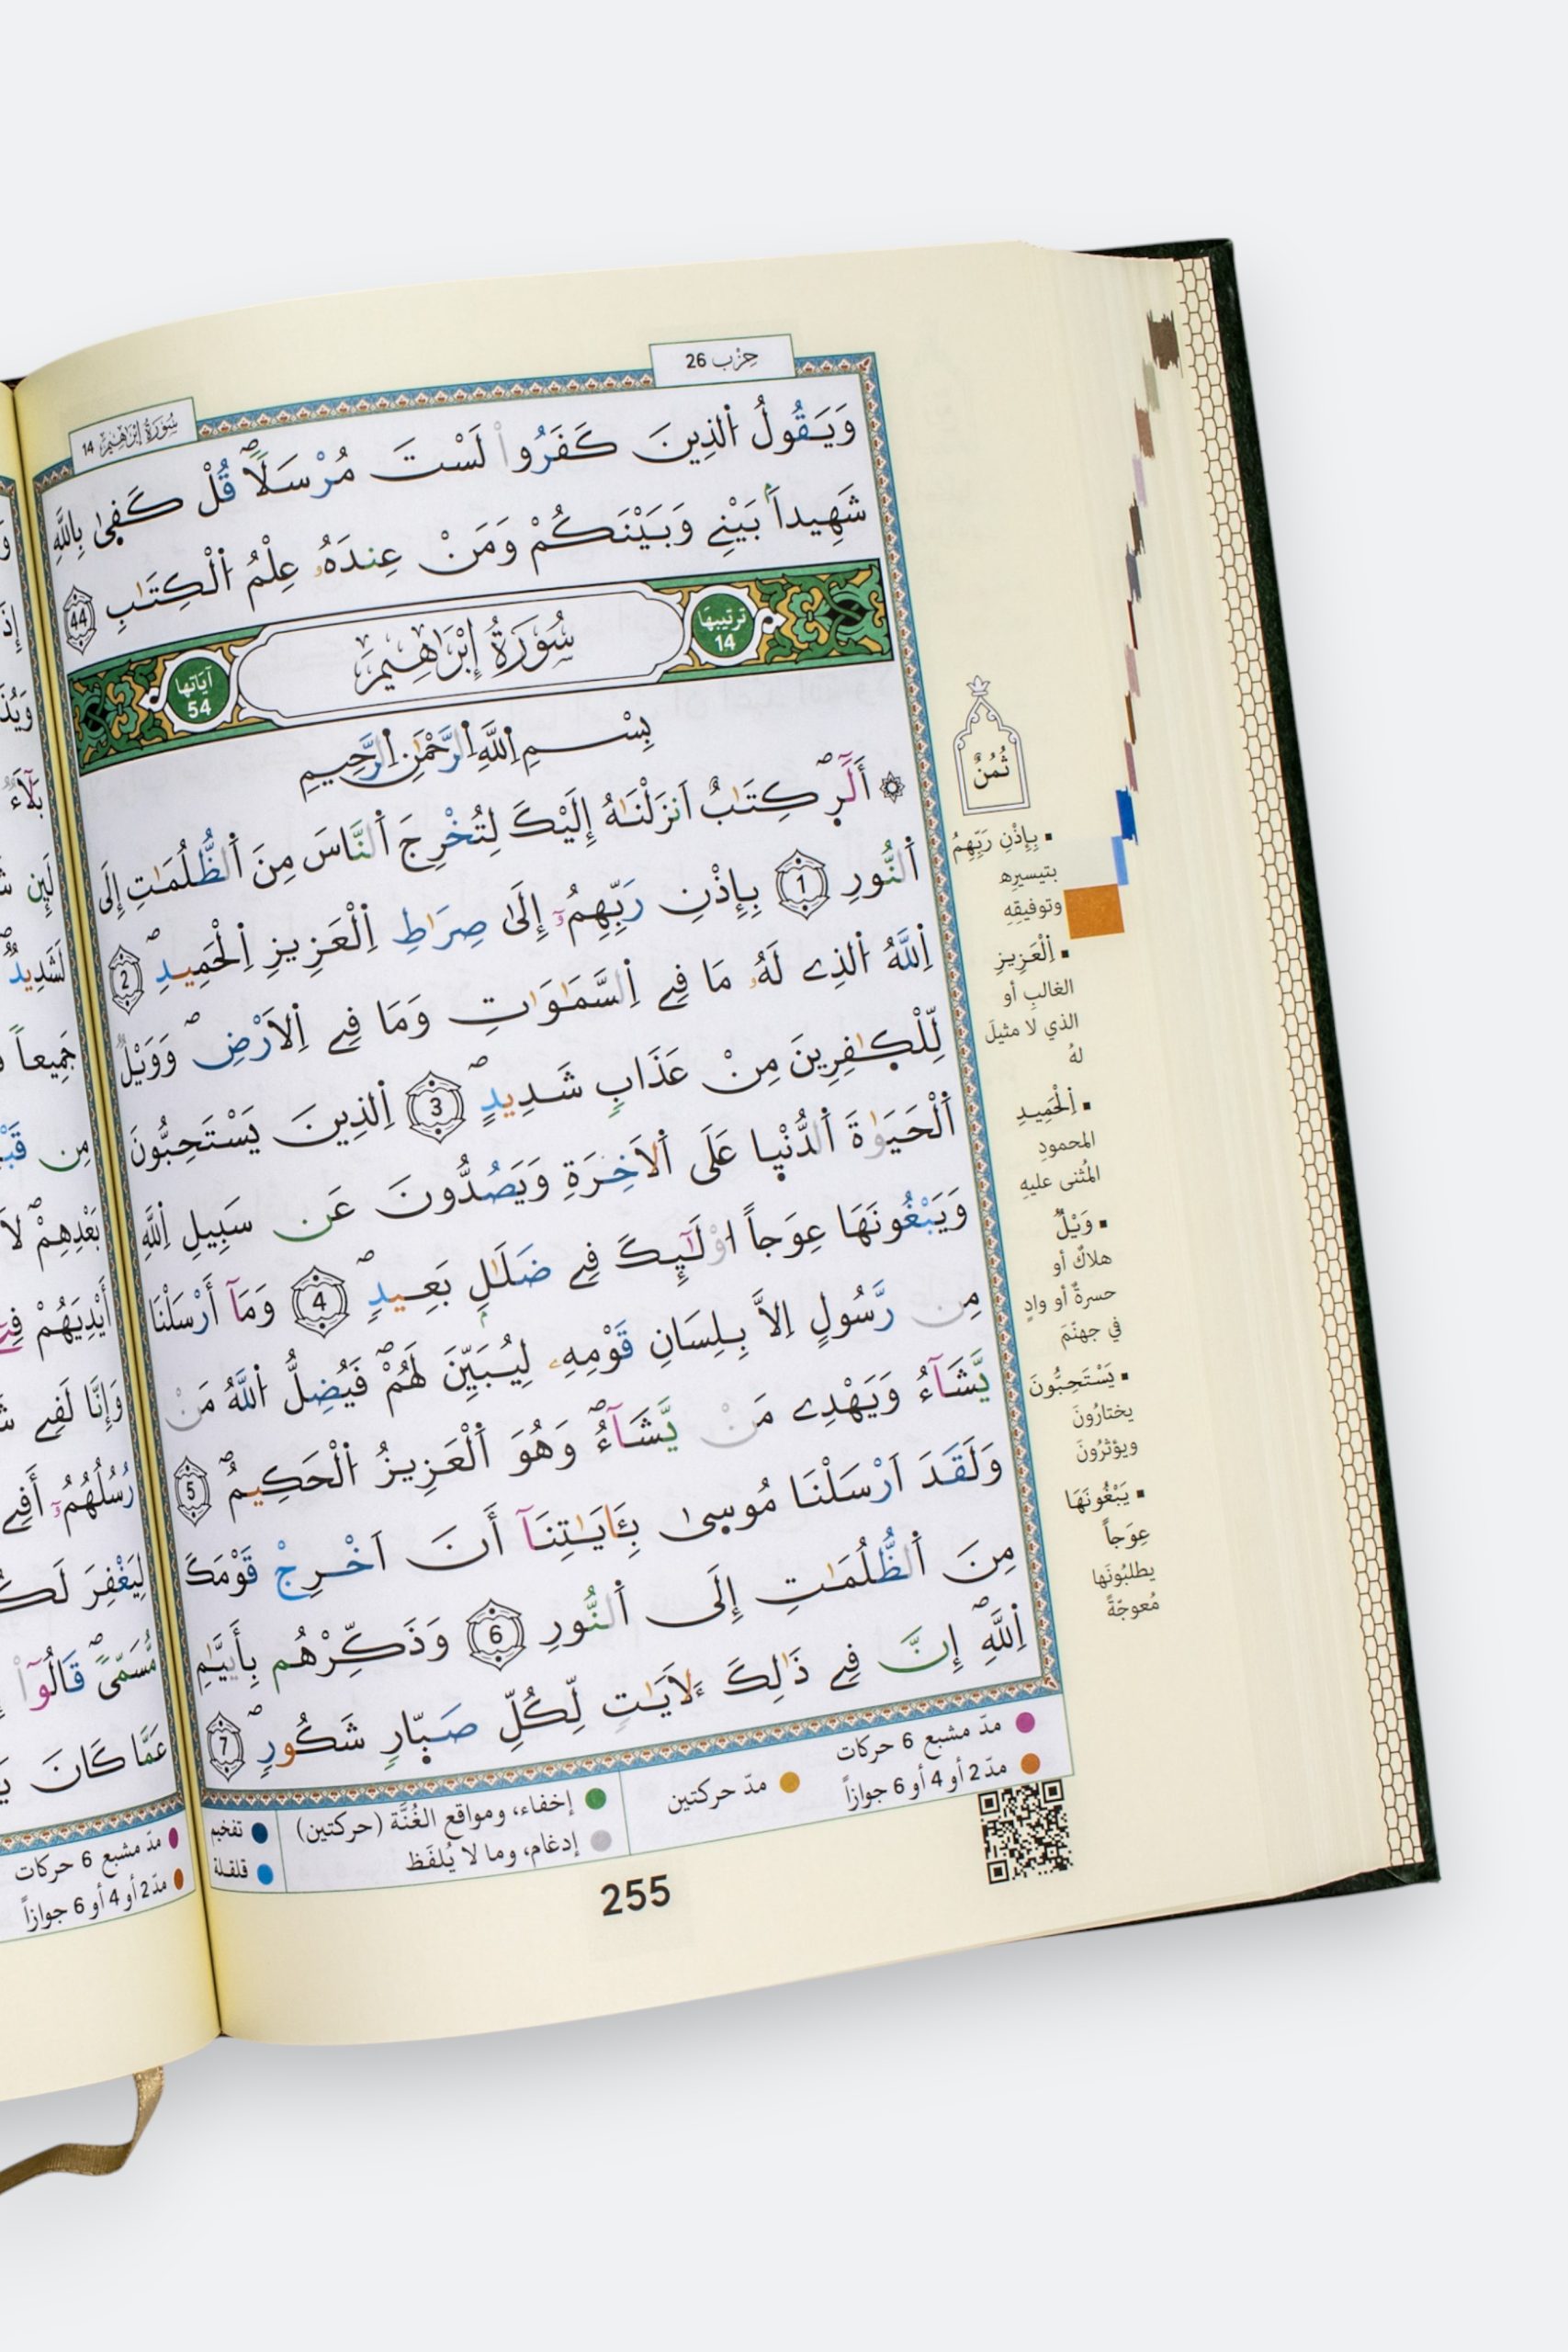 حِزْب 26
سُورَةُ إِبْرَاهِيمَ 14
وَيَقُولُ اُلذِينَ كَفَرُواْ لَسْتَ مُرْسَلاٗۖ قُلْ كَف۪ىٰ بِاللَّهِ
شَهِيداَۢ بَيْنِے وَبَيْنَكُمْ وَمَنْ عِندَهُۥ عِلْمُ اُلْكِتَٰبِ 44
ترتيبها 14
سُورَةُ إِبْرَاهِيمَ
آياتها 54
بِسْمِ اِللَّهِ اِلرَّحْمَٰنِ اِلرَّحِيمِ
أَلَٓر۪ۖ كِتَٰبٌ اَنزَلْنَٰهُ إِلَيْكَ لِتُخْرِجَ اَلنَّاسَ مِنَ اَلظُّلُمَٰتِ إِلَى
اَلنُّورِ 1 بِإِذْنِ رَبِّهِمُۥٓ إِلَىٰ صِرَٰطِ اِلْعَزِيزِ اِلْحَمِيدِۖ 2
اِللَّهُ اُلذِے لَهُۥ مَا فِے اِلسَّمَٰوَٰتِ وَمَا فِے اِلَارْضِۖ وَوَيْلٌ
لِّلْكٰ۪فِرِينَ مِنْ عَذَابٖ شَدِيدٍۖ 3 اِلذِينَ يَسْتَحِبُّونَ
اَلْحَيَوٰةَ اَلدُّنْي۪ا عَلَى اَلَاخِرَةِ وَيَصُدُّونَ عَن سَبِيلِ اِللَّهِ
وَيَبْغُونَهَا عِوَجاً ا۟وْلَٰٓئِكَ فِے ضَلَٰلِۢ بَعِيدٖۖ 4 وَمَآ أَرْسَلْنَا
مِن رَّسُولٍ اِلَّا بِلِسَانِ قَوْمِهِۦ لِيُبَيِّنَ لَهُمْۖ فَيُضِلُّ اُللَّهُ مَنْ
يَّشَآءُ وَيَهْدِے مَنْ يَّشَآءُۖ وَهُوَ اَلْعَزِيزُ اُلْحَكِيمُۖ 5
وَلَقَدَ اَرْسَلْنَا مُوس۪ىٰ بِـَٔايَٰتِنَآ أَنَ اَخْرِجْ قَوْمَكَ
مِنَ اَلظُّلُمَٰتِ إِلَى اَلنُّورِ 6 وَذَكِّرْهُم بِأَيَّٰمِ
اِللَّهِۖ إِنَّ فِے ذَٰلِكَ لَأٓيَٰتٖ لِّكُلِّ صَبّ۪ارٖ شَكُورٖۖ 7
ثُمُنٌ
▪ بِإِذْنِ رَبِّهِمُ
بتيسيرِه
وتوفيقِهِ
▪ اِلْعَزِيزِ
الغالبِ أو
الذي لا مثيلَ
لهُ
▪ اِلْحَمِيدِ
المحمودِ
المُثنى عليهِ
▪ وَيْلٌ
هلاكٌ أو
حسرةٌ أو وادٍ
في جهنّمَ
▪ يَسْتَحِبُّونَ
يختارُونَ
ويؤثرُونَ
▪ يَبْغُونَهَا
عِوَجاً
يطلبُونَها
مُعوجّةً
مدّ مشبع 6 حركات
مدّ 2 أو 4 أو 6 جوازاً
مدّ حركتين
إخفاء، ومواقع الغُنَّة (حركتين)
إدغام، وما لا يُلفَظ
تفخيم
قلقلة
255
إِذَ
بَلَآءٌ
لَئِن
لَشَدِيدٌۖ
جَمِيعاً
مِن قَبْ
بَعْدِهِمْۖ لَا
أَيْدِيَهُمْ فِے
وَإِنَّا لَفِے
رُسُلُهُمُۥٓ أَفِے
لِيَغْفِرَ لَكُ
مُّسَمّىٗۖ قَالُوٓاْ
عَمَّا كَانَ
مدّ مشبع 6 حركات
مدّ 2 أو 4 أو 6 جوازاً